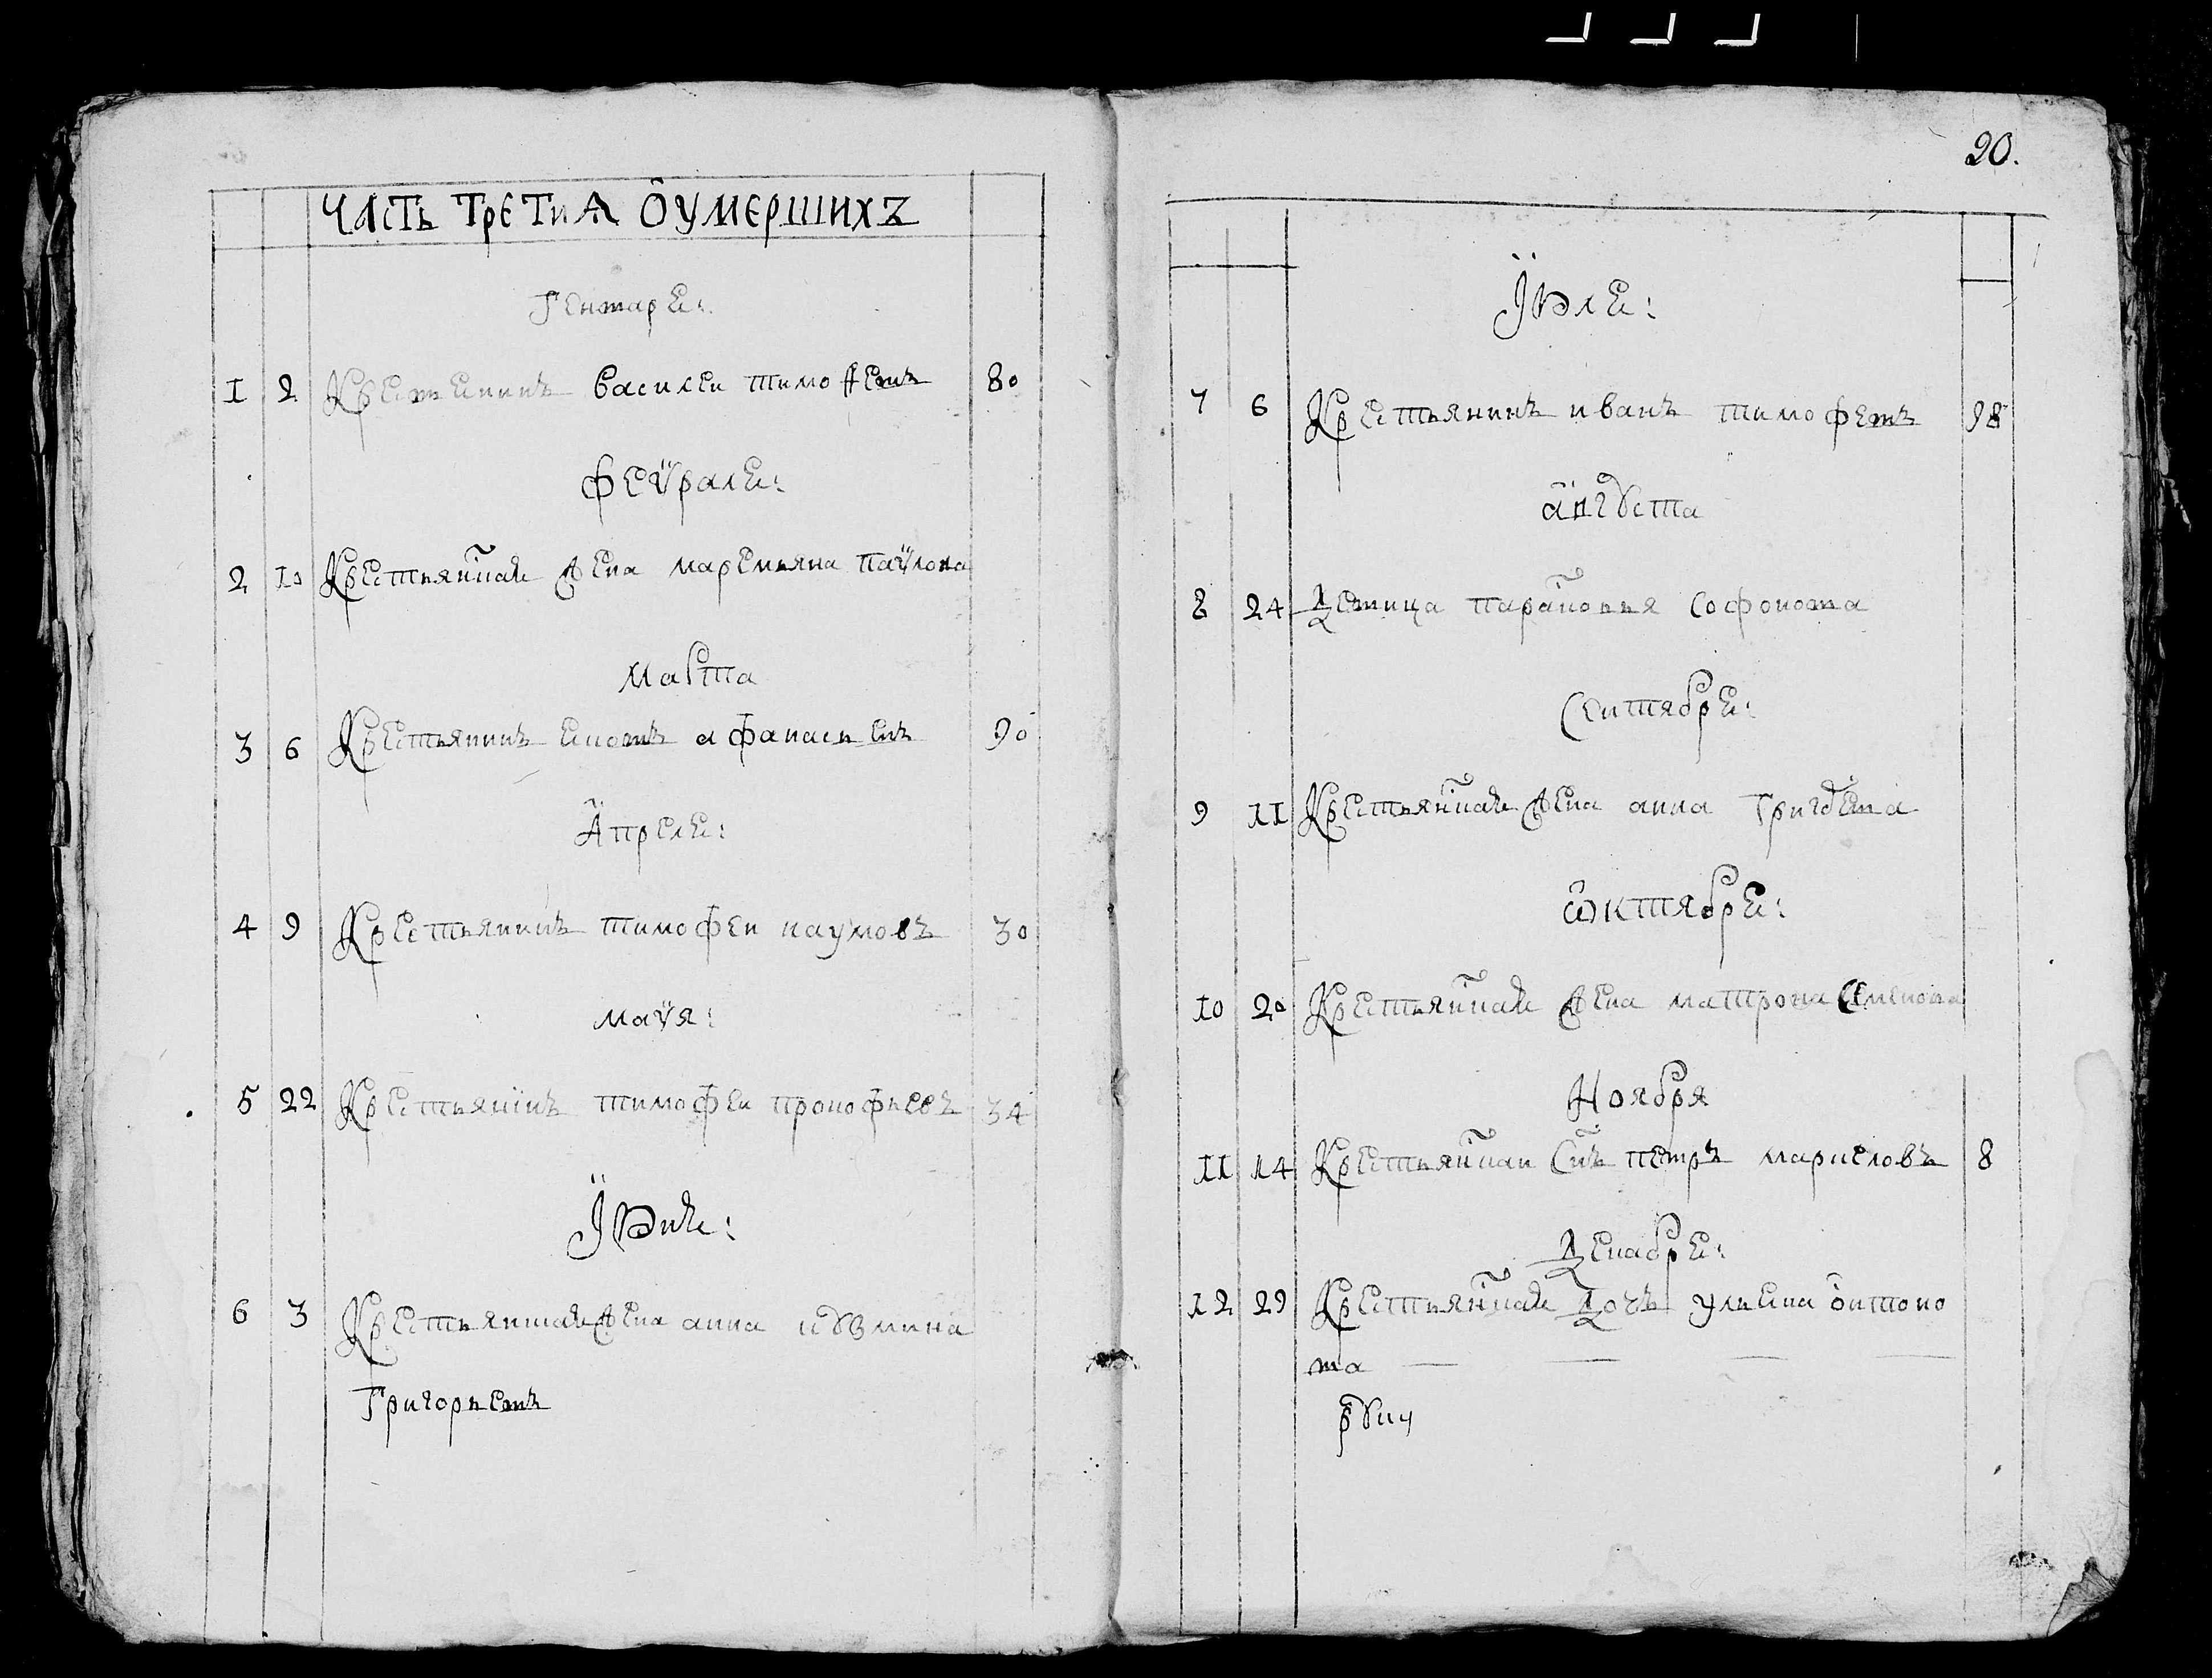 20.
ЧАСТЬ ТРЕТИѦ ОУМЕРШИХЪ
Генваре:
1 2 Крестенинъ Василеи тимоѳеевъ 80
Феѵрале:
2 10 Крестьянская жена маремьяна паѵлова
Марта
3 6 Крестьянинъ афанасьевъ 90
Апреле:
4 9 Крестьянинъ тимофеи наумовъ 30
Маѵя:
5 22 Крестьянинъ тимофеи прокофьевъ 34
Їюне:
6 3 Крестьянская жена анна
Григорьевъ
Їюле:
7 6 Крестьянинъ иванъ тимофеевъ 98
аѵгꙋста
8 24 Девица Софонова
Сентября:
9 11 Крестьянская жена анна
Ѡктябре:
10 20 Крестьянская жена матрона Семенова
Ноября
11 14 Крестьянскаи Сн҃ъ петръ маркеловъ 8
Декабре:
12 29 Крестьянская дочь ульена онтоно
ва